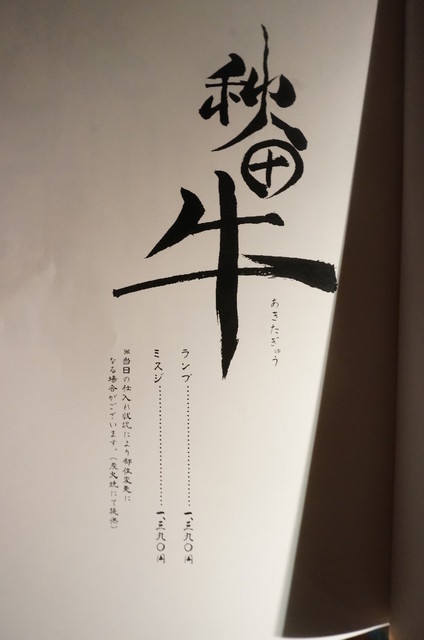 秋田牛
あきたぎゅう
ランプ……………………一、三九〇円
ミスジ……………………一、三九〇円
※当日の仕入れ状況により部位変更に
なる場合がございます。(炭火焼にて提供)